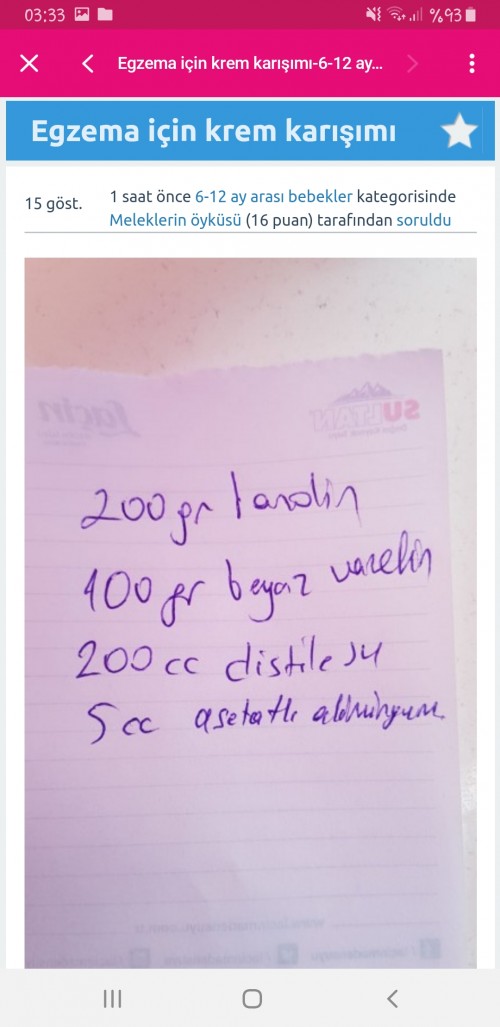 03:33
%93
Egzema için krem karışımı-6-12 ay...
Egzema için krem karışımı
15 göst.
1 saat önce 6-12 ay arası bebekler kategorisinde
Meleklerin öyküsü (16 puan) tarafından soruldu
laçin
SULTAN
200 gr lanolin
100 gr beyaz vazelin
200 cc distile su
5 cc asetatlı alüminyum